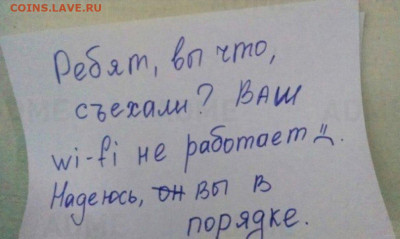 COINS.LAVE.RU
Ребят, вы что,
съехали? Ваш
wi-fi не работает
Надеюсь, он вы в
порядке.